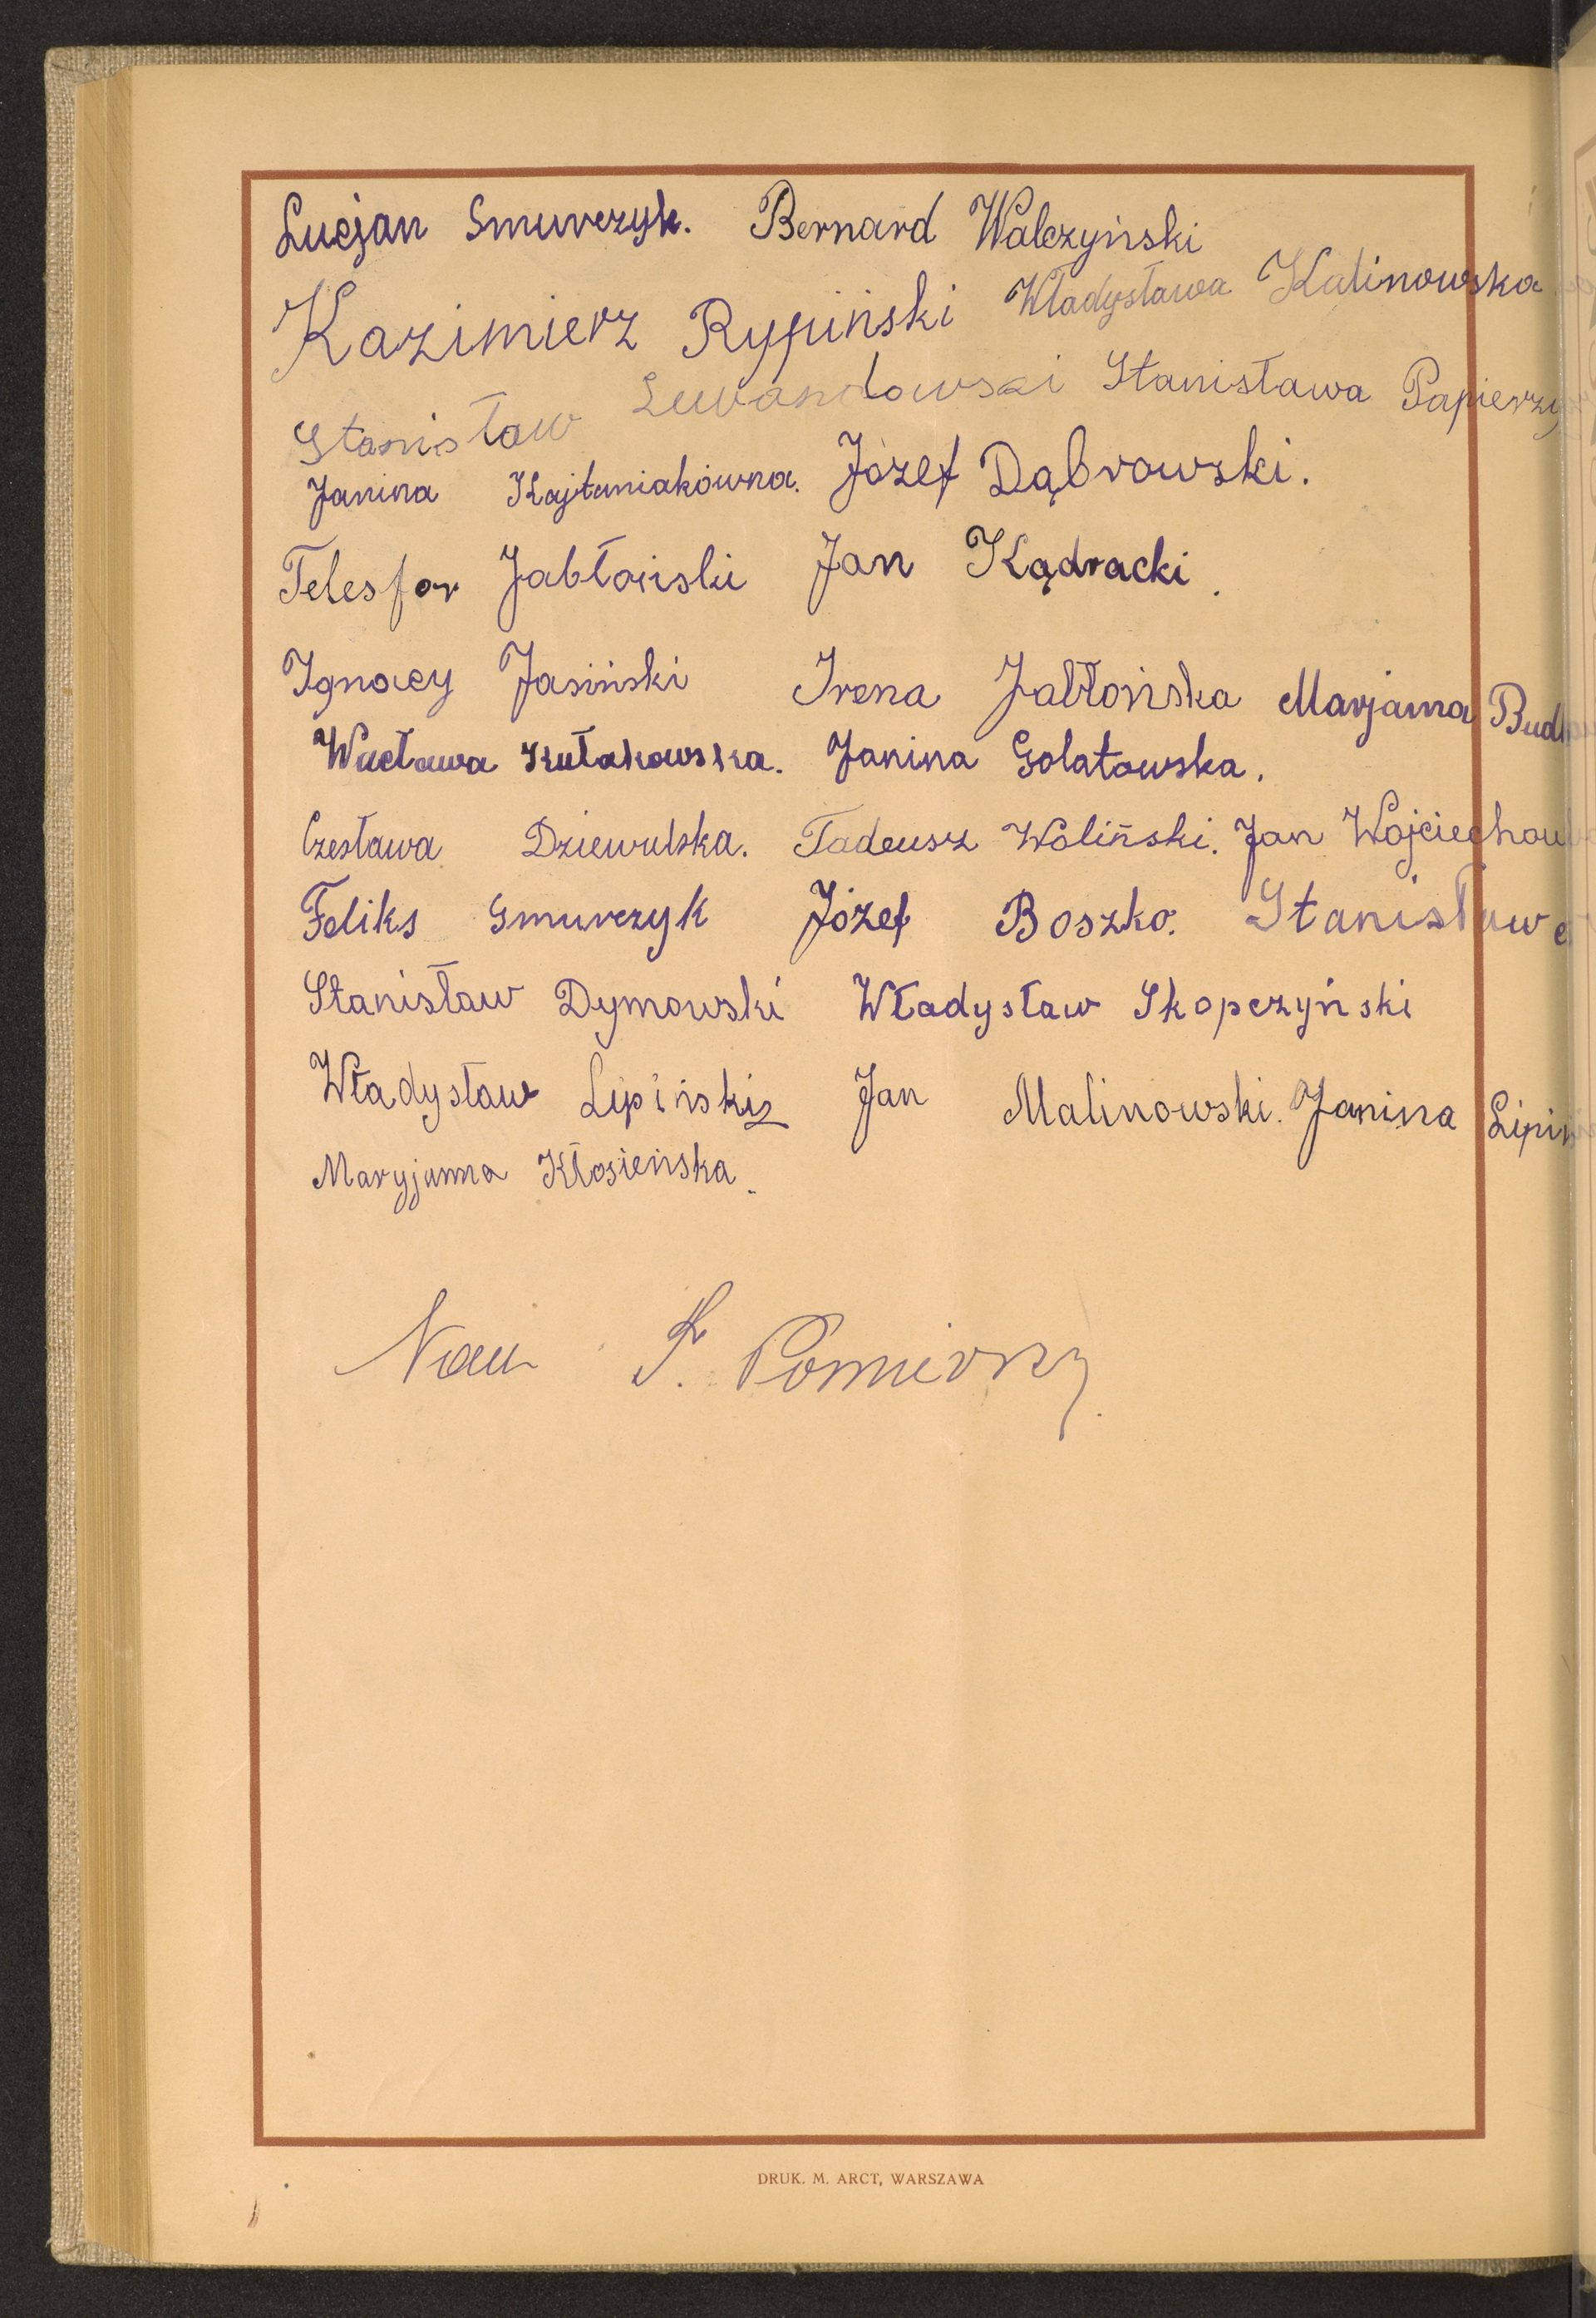 Lucjan Smurczyk. Bernard Walczyński
Kazimierz Rypiński Władysława Kalinowska
Stanisław Lewandowski Stanisława Papierzy
Janina Kajtaniakówna. Józef Dąbrowski.
Telesfor Jabłoński Jan Kądracki.
Ignacy Jasiński Irena Jabłońska Marjanna Bud
Wacława Kułakowska. Janina Golatowska.
Czesława Dziewulska. Tadeusz Woliński. Jan Wojciechow
Feliks Smurczyk Józef Boszko. Stanisław
Stanisław Dymowski Władysław Skopczyński
Władysław Lipiński Jan Malinowski. Janina Lipiń
Maryjanna Kłosieńska.
Nau P. Pomierny
DRUK. M. ARCT, WARSZAWA